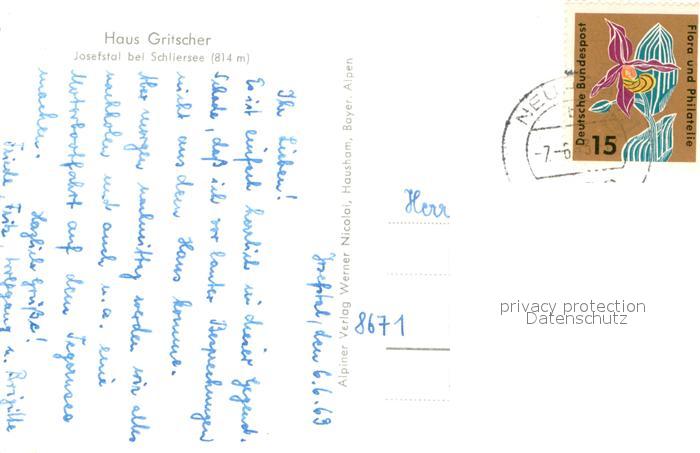 Haus Gritscher
Josefstal bei Schliersee (814 m)
Josefstal, den 6.6.63
Ihr Lieben!
Es ist einfach herrlich in dieser Gegend.
Schade, daß ich vor lauter Besprechungen
nicht aus dem Haus komme.
Aber morgen nachmittag werden wir alles
nachholen und auch u.a. eine
Motorbootfahrt auf dem Tegernsee
machen.
Herzliche Grüße!
Friede, Fritz, Wolfgang u. Brigitte
Alpiner Verlag Werner Nicolai, Hausham, Bayer. Alpen
8671
Herr
NEU
-7.-6
Deutsche Bundespost
15
Flora und Philatelie
privacy protection
Datenschutz